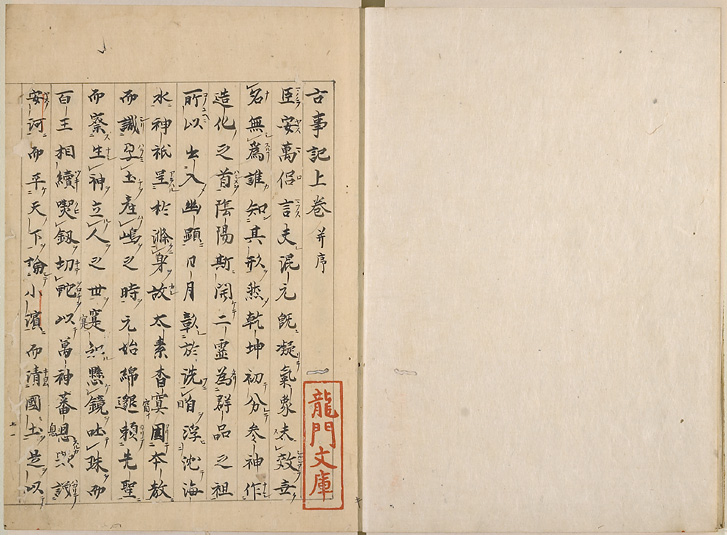 古事記上卷 并序
臣安萬侶言夫混元既凝氣象未效無
名無為誰知其形然乾坤初分參神作
造化之首陰陽斯開二靈為群品之祖
所以出入幽顯日月彰於洗目浮沈海
水神祇呈於滌身故太素杳冥因本教
而識孕土產嶋之時元始綿邈頼先聖
而察生神立人之世寔知懸鏡吐珠而
百王相續喫釼切虵以萬神蕃息與議
安河而平天下論小濱而清國土是以
龍門文庫